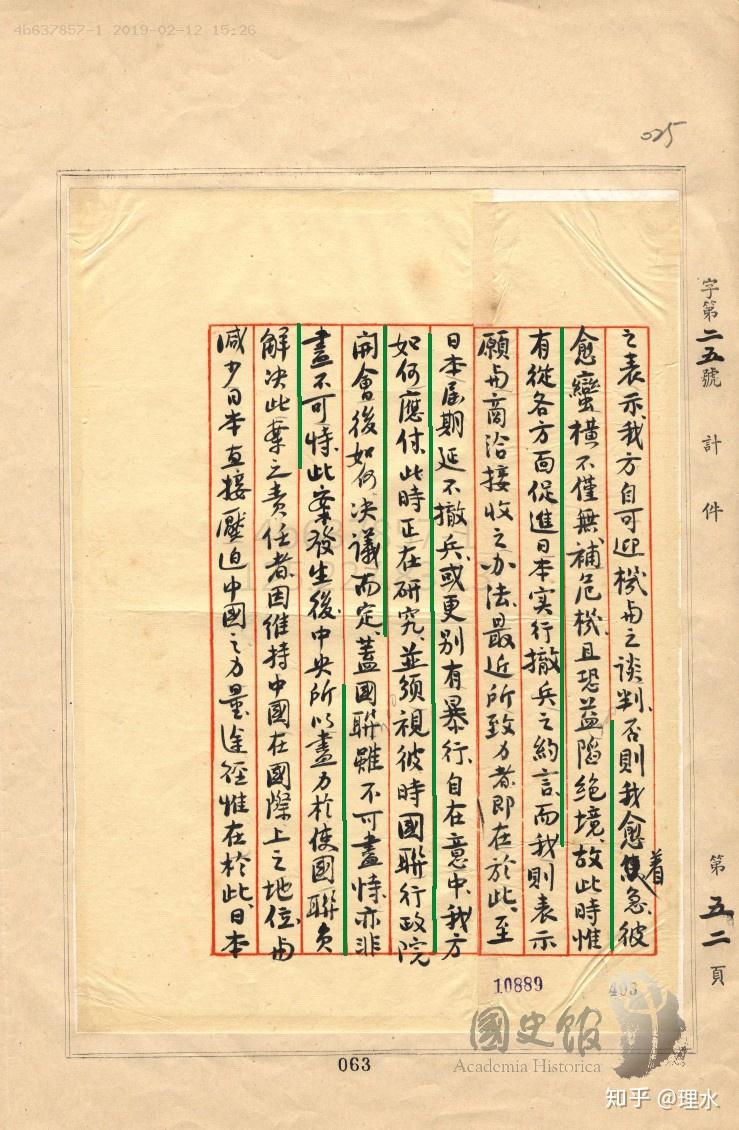 4b637857-1 2019-02-12 15:26
025
字第二五號 計 件 第五二頁
之表示、我方自可迎機与之談判、否則我愈着急、彼
愈蠻橫不僅無補危機、且恐益陷絕境、故此時惟
有從各方面促進日本实行撤兵之約言、而我則表示
願与商洽接收之办法、最近所致力者、即在於此、至
日本屆期延不撤兵、或更別有暴行、自在意中、我方
如何應付、此時正在研究、並須視彼時國聯行政院
開會後如何決議而定、蓋國聯雖不可盡恃、亦非
盡不可恃、此案發生後、中央所以盡力於使國聯負
解决此案之責任者、因維持中國在國際上之地位、与
減少日本直接壓迫中國之力量、途徑惟在於此、日本
10889
403
063
國史館
Academia Historica
知乎 @理水